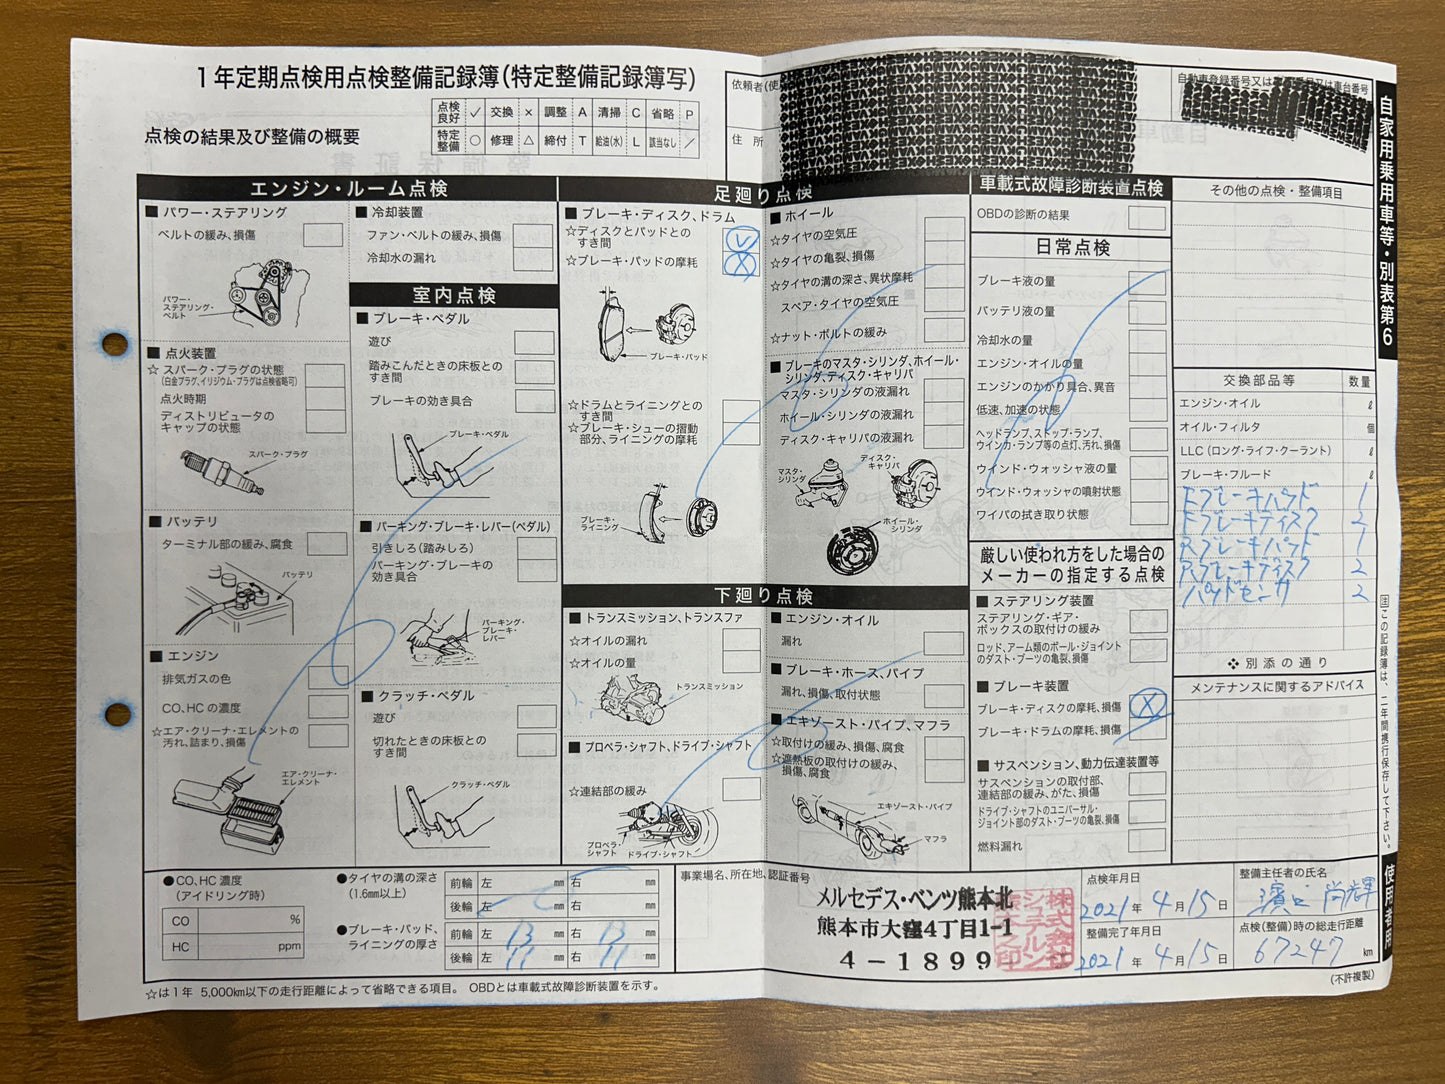 1年定期点検用点検整備記録簿(特定整備記録簿写)
点検の結果及び整備の概要
点検良好 ✓ 交換 × 調整 A 清掃 C 省略 P
特定整備 ○ 修理 △ 締付 T 給油(水) L 該当なし ／
依頼者(使
住 所
自動車登録番号又は
又は車台番号
自家用乗用車等・別表第6
エンジン・ルーム点検
■ パワー・ステアリング
ベルトの緩み、損傷
パワー・ステアリング・ベルト
■ 点火装置
☆ スパーク・プラグの状態
(白金プラグ、イリジウム・プラグは点検省略可)
点火時期
ディストリビュータの
キャップの状態
スパーク・プラグ
■ バッテリ
ターミナル部の緩み、腐食
バッテリ
■ エンジン
排気ガスの色
CO、HCの濃度
☆エア・クリーナ・エレメントの
汚れ、詰まり、損傷
エア・クリーナ・エレメント
■ 冷却装置
ファン・ベルトの緩み、損傷
冷却水の漏れ
室内点検
■ ブレーキ・ペダル
遊び
踏みこんだときの床板との
すき間
ブレーキの効き具合
ブレーキ・ペダル
■ パーキング・ブレーキ・レバー(ペダル)
引きしろ(踏みしろ)
パーキング・ブレーキの
効き具合
パーキング・ブレーキ・レバー
■ クラッチ・ペダル
遊び
切れたときの床板との
すき間
クラッチ・ペダル
足廻り点検
■ ブレーキ・ディスク、ドラム
☆ディスクとパッドとの
すき間 ✓
☆ブレーキ・パッドの摩耗 X
ブレーキ・パッド
☆ドラムとライニングとの
すき間
☆ブレーキ・シューの摺動
部分、ライニングの摩耗
ブレーキ・ライニング
■ ホイール
☆タイヤの空気圧
☆タイヤの亀裂、損傷
☆タイヤの溝の深さ、異状摩耗
スペア・タイヤの空気圧
☆ナット・ボルトの緩み
■ ブレーキのマスタ・シリンダ、ホイール・
シリンダ、ディスク・キャリパ
マスタ・シリンダの液漏れ
ホイール・シリンダの液漏れ
ディスク・キャリパの液漏れ
マスタ・シリンダ
ディスク・キャリパ
ホイール・シリンダ
下廻り点検
■ トランスミッション、トランスファ
☆オイルの漏れ
☆オイルの量
トランスミッション
■ プロペラ・シャフト、ドライブ・シャフト
☆連結部の緩み
プロペラ・シャフト
ドライブ・シャフト
■ エンジン・オイル
漏れ
■ ブレーキ・ホース、パイプ
漏れ、損傷、取付状態
■ エキゾースト・パイプ、マフラ
☆取付けの緩み、損傷、腐食
☆遮熱板の取付けの緩み、
損傷、腐食
エキゾースト・パイプ
マフラ
車載式故障診断装置点検
OBDの診断の結果
日常点検
ブレーキ液の量
バッテリ液の量
冷却水の量
エンジン・オイルの量
エンジンのかかり具合、異音
低速、加速の状態
ヘッドランプ、ストップ・ランプ、
ウインカ・ランプ等の点灯、汚れ、損傷
ウインド・ウォッシャ液の量
ウインド・ウォッシャの噴射状態
ワイパの拭き取り状態
厳しい使われ方をした場合の
メーカーの指定する点検
■ ステアリング装置
ステアリング・ギア・
ボックスの取付けの緩み
ロッド、アーム類のボール・ジョイント
のダスト・ブーツの亀裂、損傷
■ ブレーキ装置
ブレーキ・ディスクの摩耗、損傷 X
ブレーキ・ドラムの摩耗、損傷
■ サスペンション、動力伝達装置等
サスペンションの取付部、
連結部の緩み、がた、損傷
ドライブ・シャフトのユニバーサル・
ジョイント部のダスト・ブーツの亀裂、損傷
燃料漏れ
その他の点検・整備項目
交換部品等 数量
エンジン・オイル ℓ
オイル・フィルタ 個
LLC(ロング・ライフ・クーラント) ℓ
ブレーキ・フルード ℓ
Fブレーキパッド 1
Fブレーキディスク 2
Rブレーキパッド 1
Rブレーキディスク 2
パッドセンサ 2
❖ 別添の通り
メンテナンスに関するアドバイス
注 この記録簿は、二年間携行保存して下さい。
使用者用
●CO、HC濃度
(アイドリング時)
CO %
HC ppm
●タイヤの溝の深さ
(1.6mm以上)
前輪 左 mm 右 mm
後輪 左 mm 右 mm
●ブレーキ・パッド、
ライニングの厚さ
前輪 左 13 mm 右 13 mm
後輪 左 11 mm 右 11 mm
事業場名、所在地、認証番号
メルセデス・ベンツ熊本北
熊本市大窪4丁目1-1
4－1899
点検年月日
2021 年 4 月 15 日
整備完了年月日
2021 年 4 月 15 日
整備主任者の氏名
尚輝
点検(整備)時の総走行距離
67247 km
(不許複製)
☆は1年 5,000km以下の走行距離によって省略できる項目。 OBDとは車載式故障診断装置を示す。